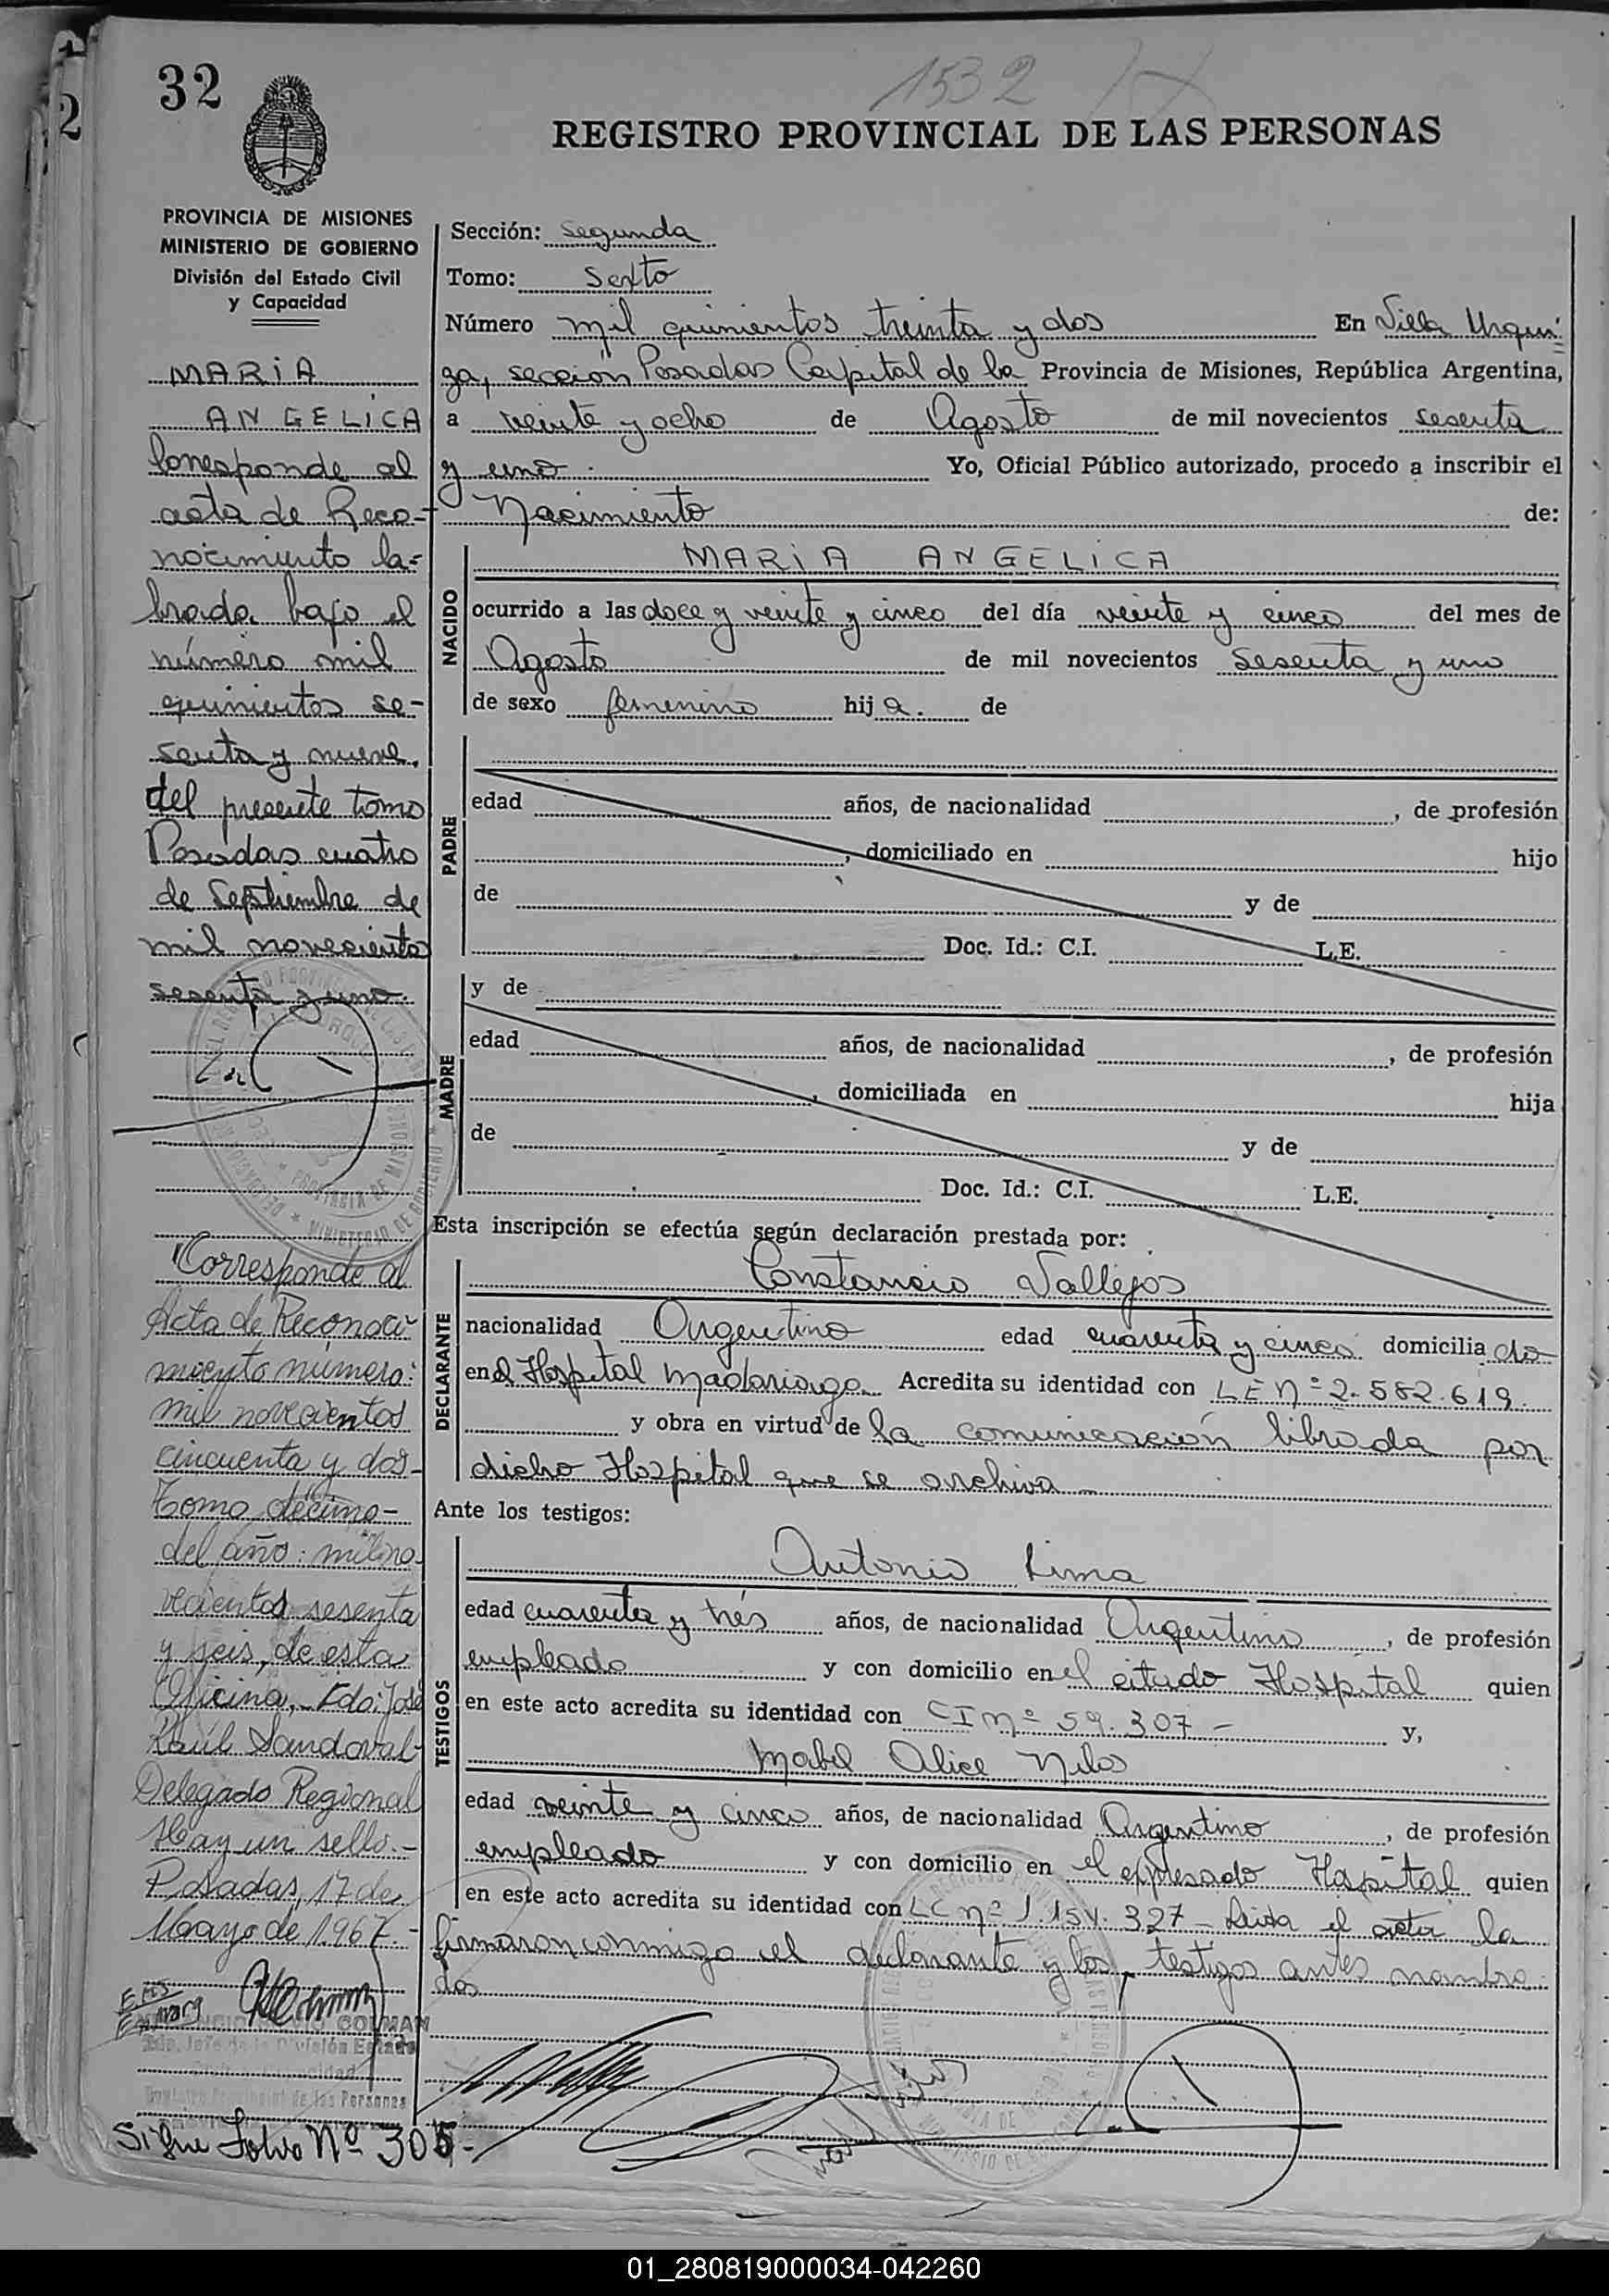 32
1532
REGISTRO PROVINCIAL DE LAS PERSONAS
PROVINCIA DE MISIONES
MINISTERIO DE GOBIERNO
División del Estado Civil
y Capacidad
MARIA
ANGELICA
Corresponde al
acta de Reco-
nocimiento la=
brada bajo el
número mil
quinientos se-
senta y nueve,
del presente tomo
Posadas cuatro
de Septiembre de
mil novecientos
sesenta y uno.
Corresponde al
Acta de Reconoci-
miento número:
mil novecientos
cincuenta y dos-
Tomo décimo-
del año: mil no-
vecientos sesenta
y seis, de esta
Oficina.- Fdo: José
Raúl Sandoval-
Delegado Regional
Hay un sello.-
Posadas, 17 de
Mayo de 1967.-
COLMAN
Sigue Folio Nº 305-
Sección: Segunda
Tomo: Sexto
Número mil quinientos treinta y dos En Villa Urqui=
za, sección Posadas Capital de la Provincia de Misiones, República Argentina,
a veinte y ocho de Agosto de mil novecientos sesenta
y uno. Yo, Oficial Público autorizado, procedo a inscribir el
Nacimiento de:
NACIDO
MARIA ANGELICA
ocurrido a las doce y veinte y cinco del día veinte y cinco del mes de
Agosto de mil novecientos sesenta y uno
de sexo femenino hija. de
PADRE
edad años, de nacionalidad , de profesión
, domiciliado en hijo
de y de
Doc. Id.: C.I. L.E.
MADRE
y de
edad años, de nacionalidad , de profesión
, domiciliada en hija
de y de
Doc. Id.: C.I. L.E.
Esta inscripción se efectúa según declaración prestada por:
DECLARANTE
Constancio Vallejos
nacionalidad Argentino edad cuarenta y cinco domiciliado
en el Hospital Madariaga Acredita su identidad con LE nº 2.582.619.
y obra en virtud de la comunicación librada por
dicho Hospital que se archiva
Ante los testigos:
TESTIGOS
Antonio Lima
edad cuarenta y trés años, de nacionalidad Argentino , de profesión
empleado y con domicilio en el citado Hospital quien
en este acto acredita su identidad con CI nº 59.307- y,
Mabel Alice Nilos
edad veinte y cinco años, de nacionalidad Argentino , de profesión
empleado y con domicilio en el expresado Hospital quien
en este acto acredita su identidad con LC nº 1.154.327- Leida el acta la
firmaron conmigo el declarante y los testigos antes nombra-
dos
01_280819000034-042260